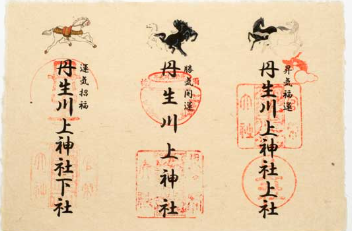 昇気福運
丹生川上神社上社
勝気開運
丹生川上神社
運気招福
丹生川上神社下社